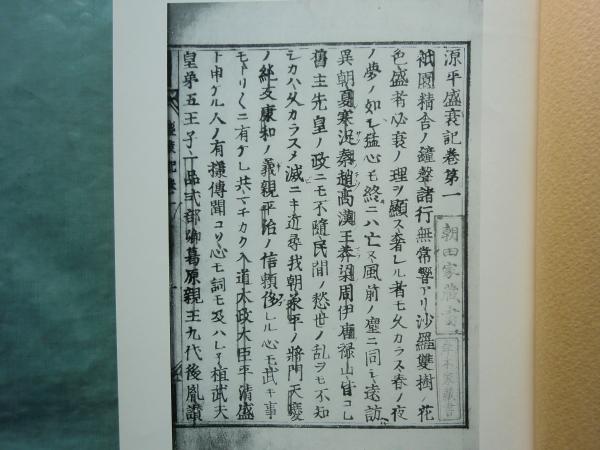 源平盛衰記巻第一
祇園精舎ノ鐘聲諸行無常響アリ沙羅雙樹ノ花
色盛者必衰ノ理ヲ顯ス奢レル者モ久カラス春ノ夜
ノ夢ノ如シ猛心モ終ニハ亡ス風前ノ塵ニ同シ遠訪
異朝夏寒浞秦趙高漢王莽梁周伊唐禄山皆コレ
舊主先皇ノ政ニモ不隨民間ノ愁世ノ乱ヲモ不知
シカハ久カラスメ滅ニキ近尋我朝承平ノ將門天慶
ノ純友康和ノ義親平治ノ信頼侈レル心モ武キ事
モトリ〱ニ有ケレ共マチカク入道太政大臣平清盛
ト申ケル人ノ有樣傳聞コソ心モ詞モ及ハレネ桓武天
皇第五王子一品式部卿葛原親王九代後胤讃
朝田家蔵書